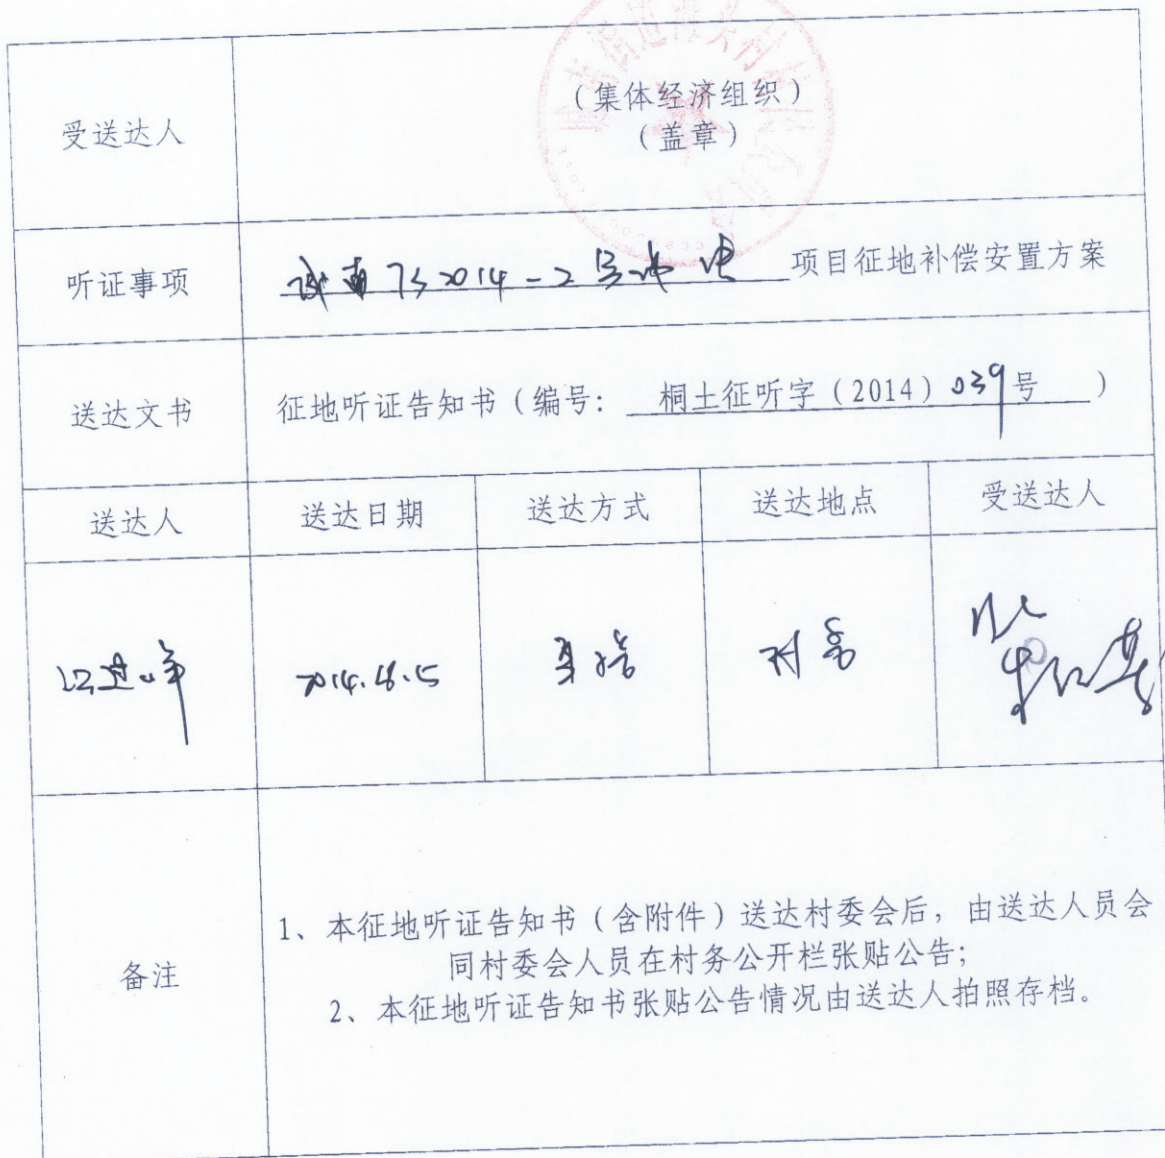 受送达人
（集体经济组织）
（盖章）
听证事项
2014-2号 项目征地补偿安置方案
送达文书
征地听证告知书（编号： 桐土征听字（2014）039号 ）
送达人 送达日期 送达方式 送达地点 受送达人
直接
备注
1、本征地听证告知书（含附件）送达村委会后，由送达人员会
同村委会人员在村务公开栏张贴公告；
2、本征地听证告知书张贴公告情况由送达人拍照存档。